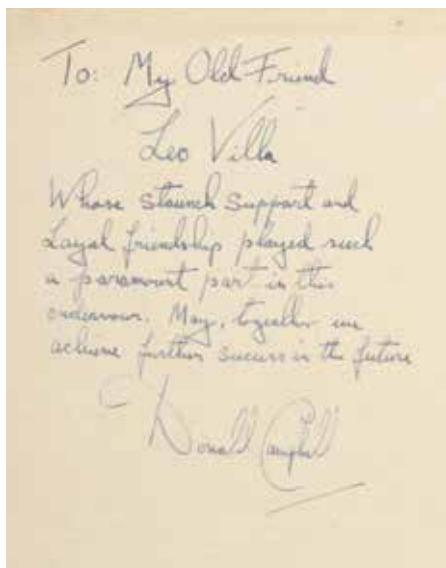 To: My Old Friend
Leo Villa
Whose staunch support and
Loyal friendship played such
a paramount part in this
endeavour. May, together we
achieve further success in the future
Donald Campbell